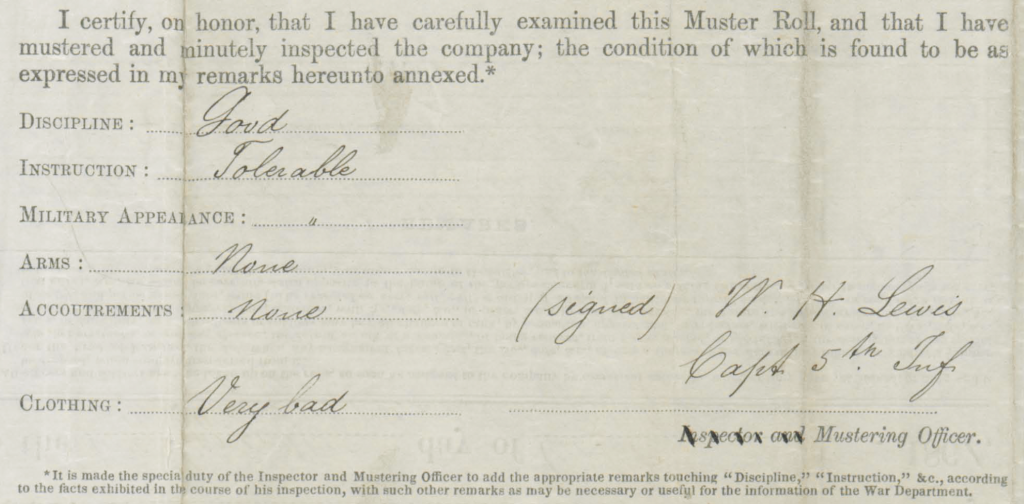 I certify, on honor, that I have carefully examined this Muster Roll, and that I have
mustered and minutely inspected the company; the condition of which is found to be as
expressed in my remarks hereunto annexed.*
DISCIPLINE: Good
INSTRUCTION: Tolerable
MILITARY APPEARANCE: "
ARMS: None
ACCOUTREMENTS: None
(signed) W. H. Lewis
Capt 5th Inf
CLOTHING: Very bad
Inspector and Mustering Officer.
*It is made the special duty of the Inspector and Mustering Officer to add the appropriate remarks touching "Discipline," "Instruction," &c., according
to the facts exhibited in the course of his inspection, with such other remarks as may be necessary or useful for the information of the War Department.